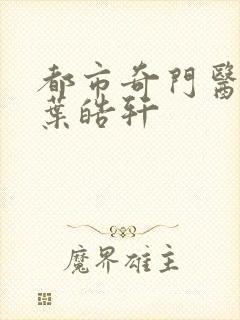 都市奇門醫
葉皓軒
魔界雄主